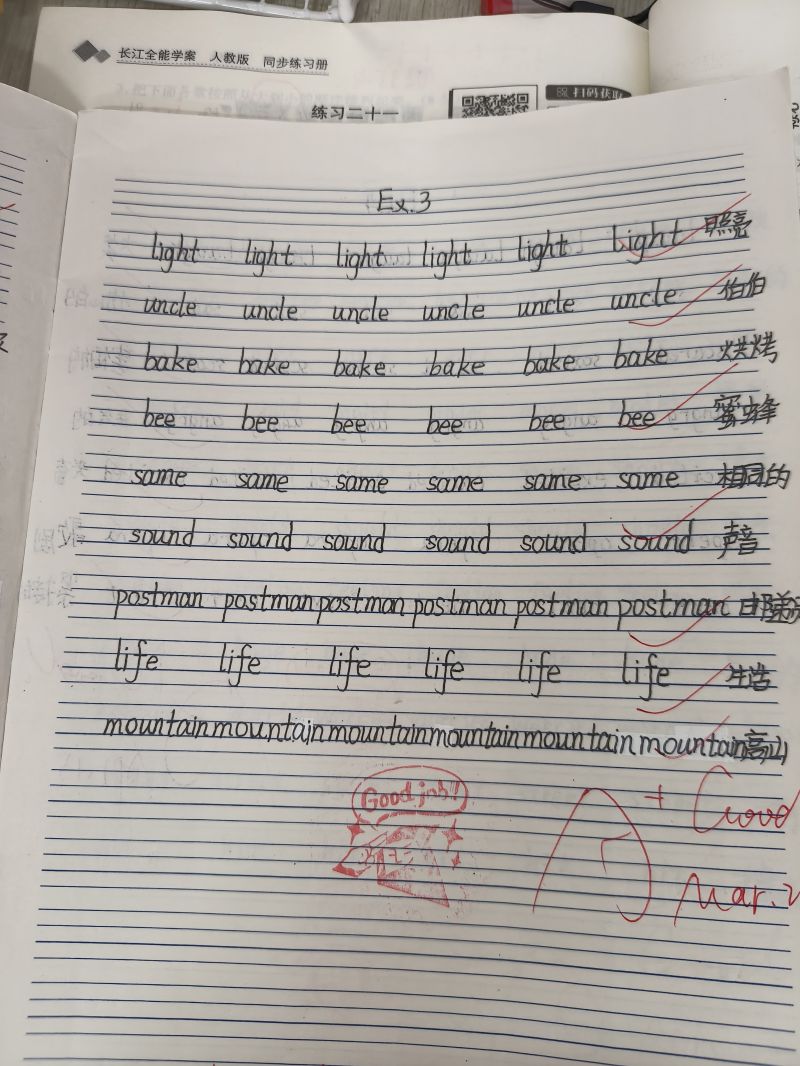 长江全能学案 人教版 同步练习册
练习二十一
扫码获取
Ex.3
light light light light light light 照亮
uncle uncle uncle uncle uncle uncle 伯伯
bake bake bake bake bake bake 烘烤
bee bee bee bee bee bee 蜜蜂
same same same same same same 相同的
sound sound sound sound sound sound 声音
postman postman postman postman postman postman
life life life life life life 生活
mountain mountain mountain mountain mountain mountain 高山
Good job!
A+ Good
Mar.2